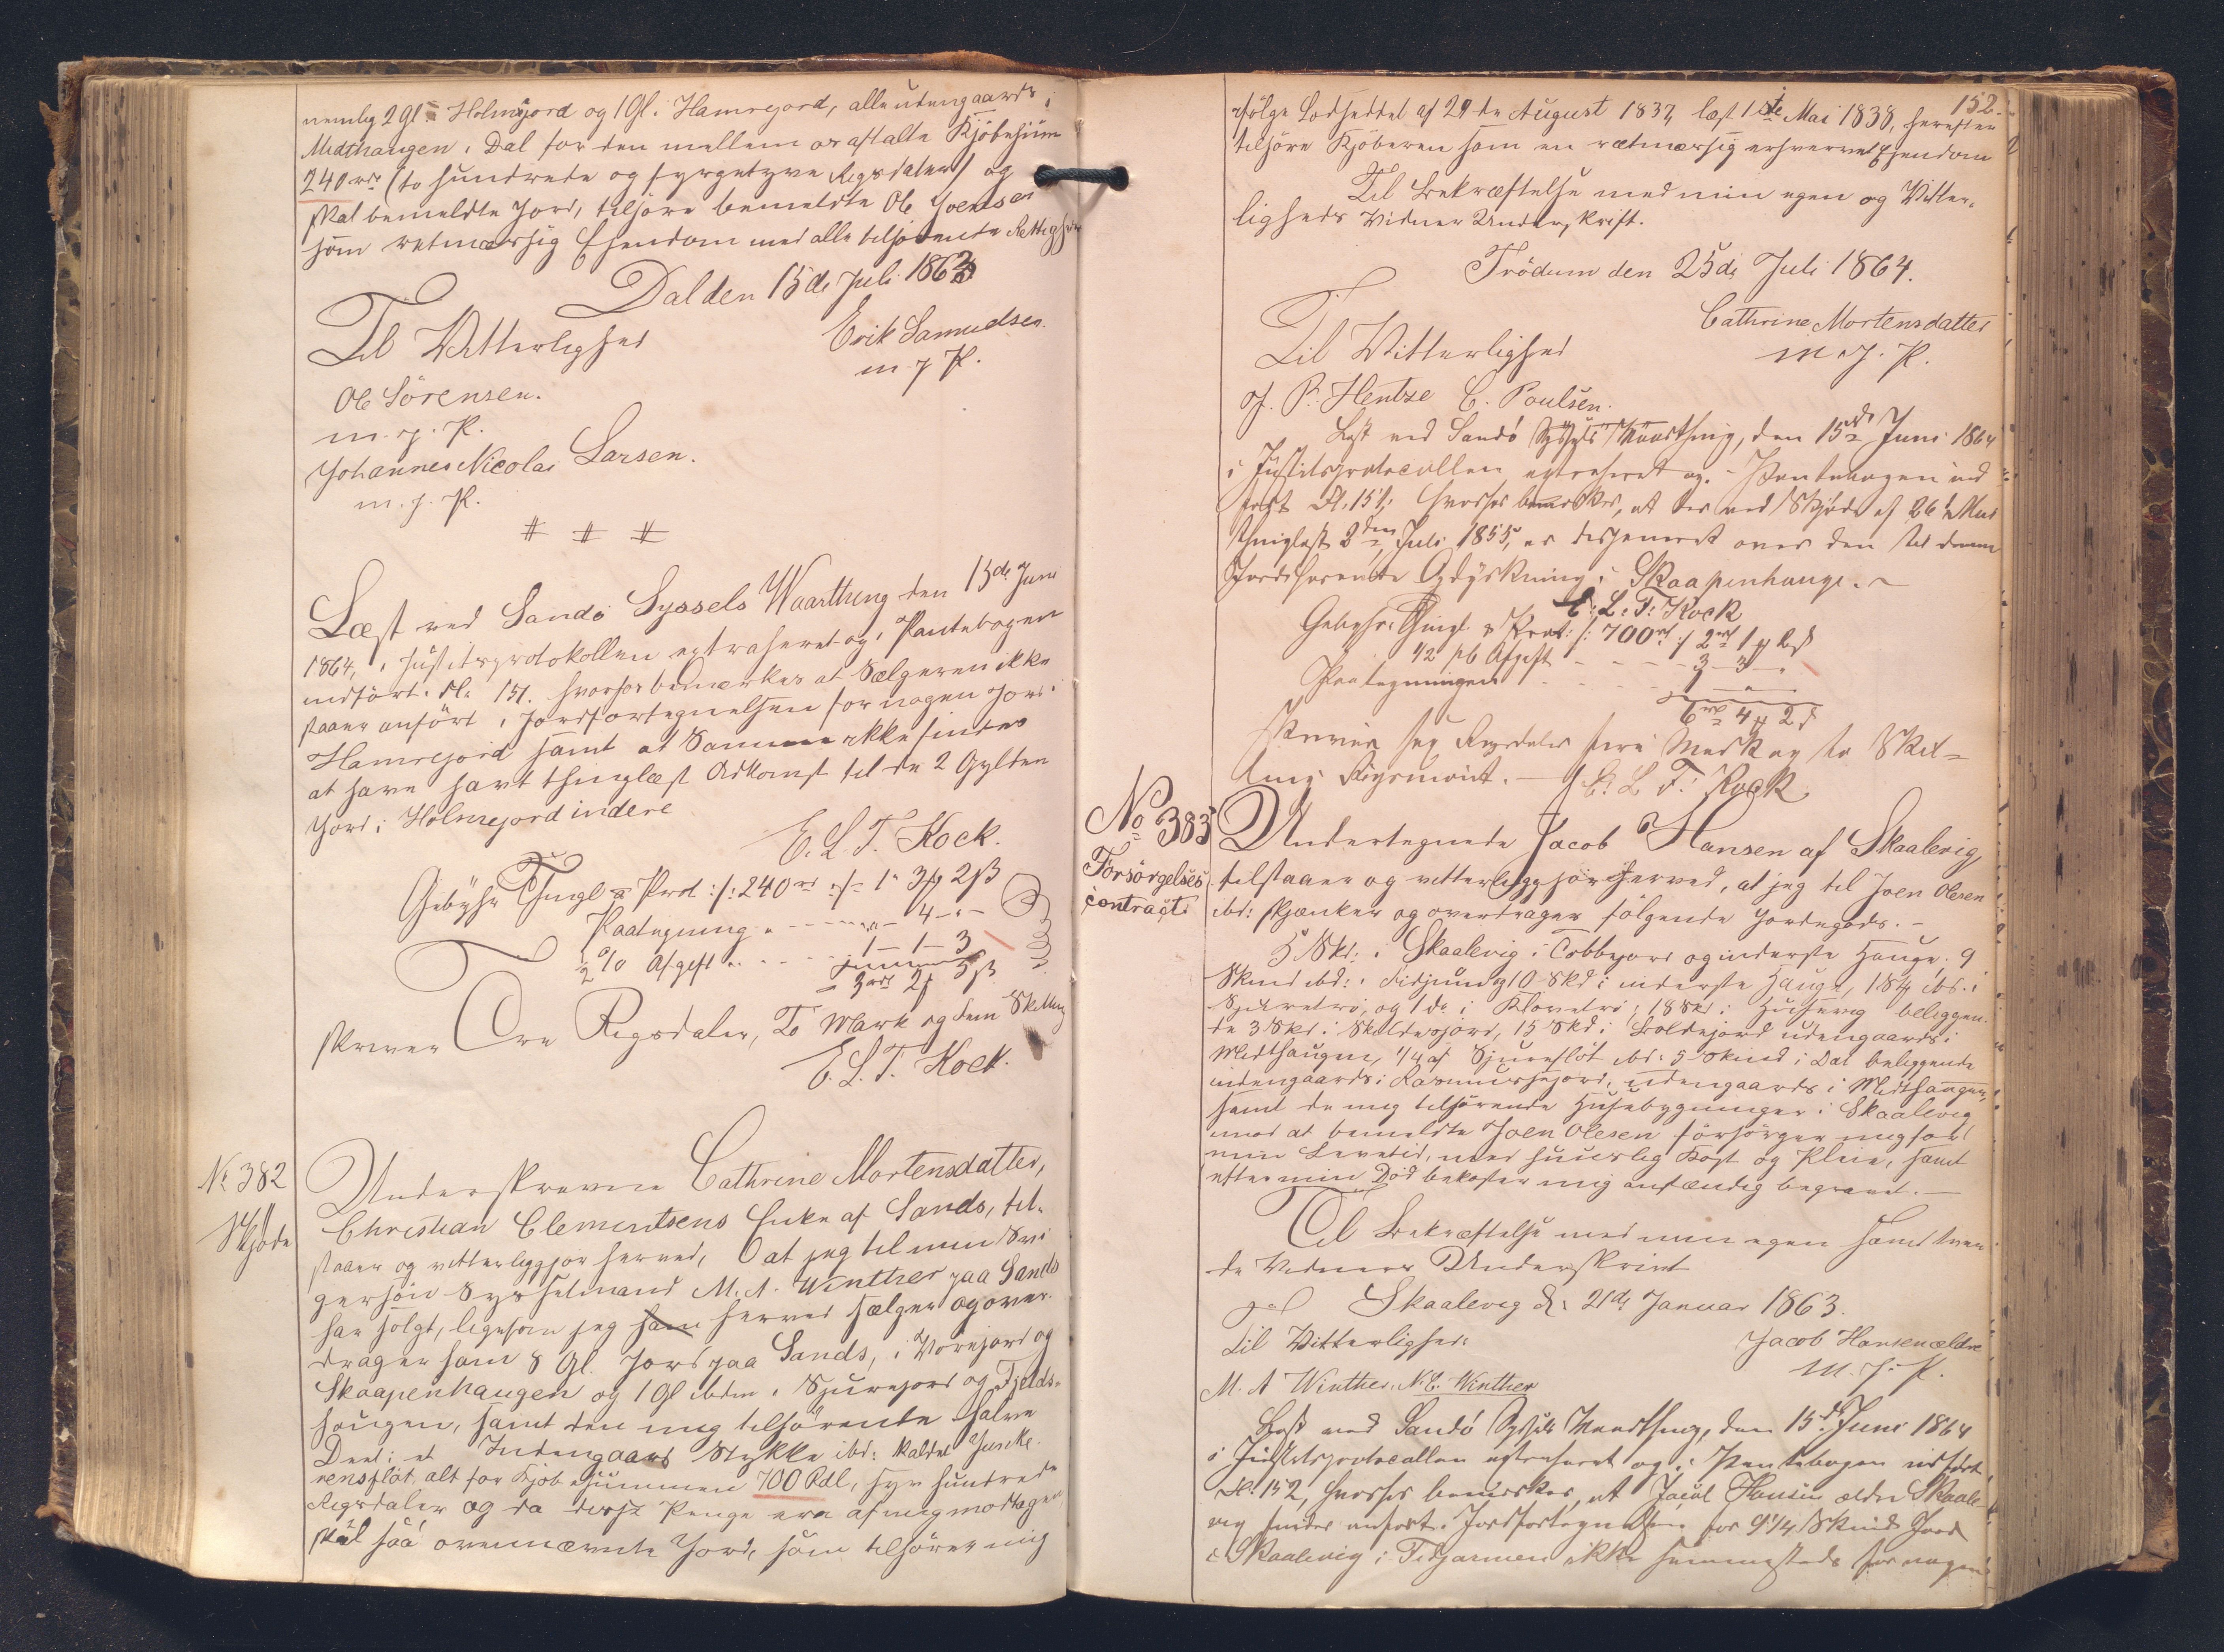 nemlig 2 Gl. i Holmejord og 1 Gl. i Hamrejord, alle udengaards i
Midthaugen i Dal for den mellem os aftalte Kjöbesum
240 rd (to hundrede og fyrgetyve Rigsdaler) og
skal bemeldte Jord, tilhöre bemeldte Ole Joensen
som retmæssig Ejendom med alle tilhörende Rettigheder
Dal den 15de Juli 1863
Til Vitterlighed
Erik Samuelsen
m. j. P.
Ole Sörensen.
m. j. P.
Johannes Nicolai Larsen.
m. j. P.
# # #
Læst ved Sandö Syssels Waarthing den 15de Juni
1864, i Justitsprotokollen extraheret og i Pantebogen
indfört Fl. 151. hvorhos bemærkes at Sælgeren ikke
staaer anfört i Jordfortegnelsen for nogen Jord i
Hamrejord samt at Samme ikke findes
at have havt thinglæst Adkomst til de 2 Gylden
Jord i Holmejord indere
E. L. T. Kock.
Gebyhr Thingl. & Prot :/: 240 rd :/: 1 " 3 # 2 ß
Paategning " - - - - " - 4 - " -
1/2 % Afgift " - - - - 1 - 1 - 3
= 3 rd 2 # 5 ß
skriver Tre Rigsdaler, To Mark og fem Skilling
E. L. T. Kock.
No 382
Skjöde
Underskrevne Cathrine Mortensdatter,
Christian Clementsens Enke af Sands, til-
staaer og vitterliggjör herved, at jeg til min Svi
gersön Sysselmand M. A. Winther paa Sands
har solgt, ligesom jeg ham herved sælger og over-
drager ham 8 Gl. Jord paa Sands, i Vorejord og
Skaapenhaugen og 1 Gl ibdm i Sjurejord og Fjelds-
haugen, samt den mig tilhörende halve
Deel i et Indengaards Stykke ibd: kaldet
alt for Kjöbesummen 700 Rdl, syv hundrede
Rigsdaler og da disse Penge ere af mig modtagen
skal saa ovennævnte Jord, som tilhörer mig
152.
ifölge Lodseddel af 29de August 1837, læst 1ste Mai 1838, herefter
tilhöre Kjöberen som en retmæssig erhvervet Ejendom
Til Bekræftelse med min egen og Vitter-
ligheds Vidner Underskrift.
Trödum den 25de Juli 1864.
Cathrine Mortensdatter
m. j. P.
Til Vitterlighed
J. P. Hentze C. Poulsen.
Læst ved Sandö Syssels Waarthing, den 15de Juni 1864
i Justitsprotocollen extraheret og i Pantebogen ind
fört Fl. 151; hvorhos bemærkes, at der ved Skjöde af 26de Mai
thinglæst 2den Juli 1855, er disponeret over den til denne
Jord hörende Opdyrkning i Skaapenhauge. -
E. L. T. Kock
Gebyhr: Thingl. & Prot: /: 700 rd :/ 2 rd 1 # 2 ß
1/2 pC Afgift - - - - 3 - 3 - "
Paategningen - - - -
6 rd 4 # 2 ß
Skriver sex Rigsdaler fire Mark og to Skil-
ling Rigsmönt. - E. L. T. Kock
No 383
Forsörgelses
contract.
Undertegnede Jacob Hansen af Skaalevig
tilstaaer og vitterliggjör herved, at jeg til Joen Olesen
ibd: skjænker og overdrager fölgende Jordegods. -
5 Skd: i Skaalevig i Tobbejord og inderste Hauge, 9
Skind ibd: i og 10 Skd i inderste Hauge, ibd. i
og 1 do i 18 Skd i beliggen-
de 3 Skd i 15 Skd i Boldejord udengaards i
Midthaugen, 1/4 af ibd: 5 Skind i Dal beliggende
indengaards i Rasmussejord, udengaards i Midthaugen,
samt de mig tilhörende Husebygninger i Skaalevig
mod at bemeldte Joen Olesen forsörger mig for
min Levetid, med huuslig Kost og Pleie, samt
efter min Död bekoster mig anstændig begravet. -
Til Bekræftelse med min egen samt tven-
de Vidners Underskrivt
Skaalevig d: 21de Januar 1863.
Til Vitterlighed:
Jacob Hansen ældre
m. j. P.
M. A Winther. N. E. Winther
Læst ved Sandö Syssels Waarthing, den 15de Juni 1864
i Justitsprotocollen extraheret og i Pantebogen indfört
Fl. 152, hvorhos bemærkes, at Jacob Hansen ældre Skaale-
vig findes anfört i Jordfortegnelsen for 9 1/4 Skind Jord
i Skaalevig i ikke sammesteds for nogen